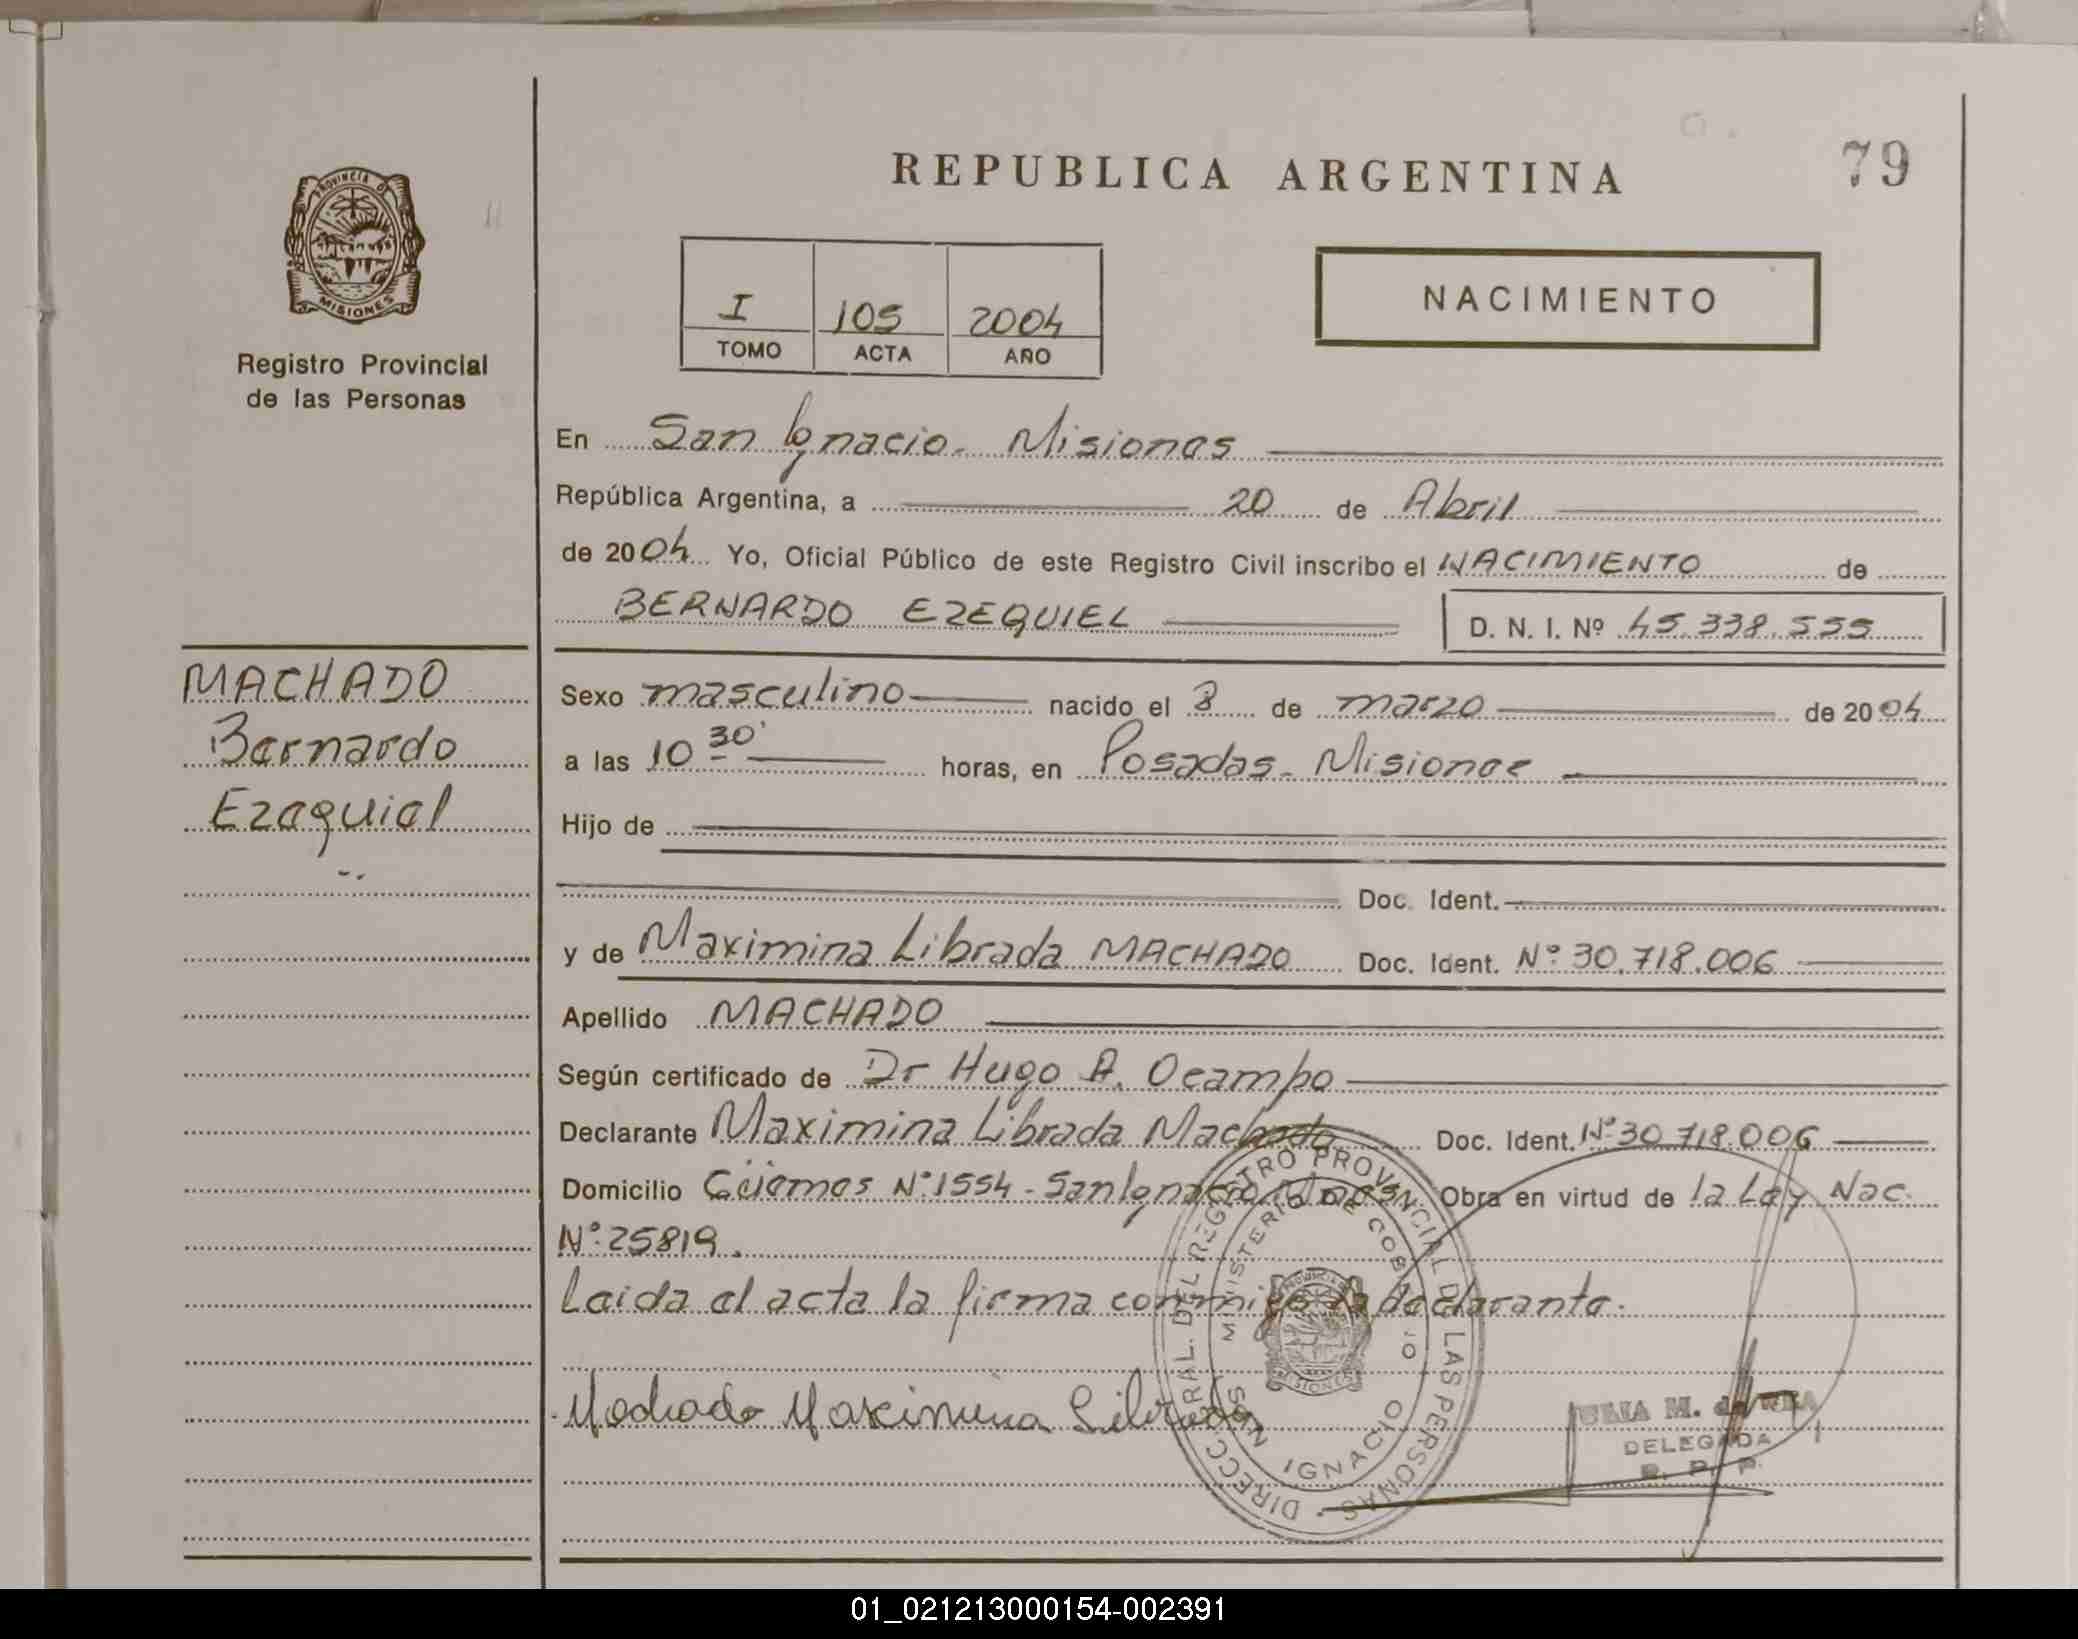 REPUBLICA ARGENTINA
79
PROVINCIA DE
MISIONES
Registro Provincial
de las Personas
I 105 2004
TOMO ACTA AÑO
NACIMIENTO
En San Ignacio - Misiones
República Argentina, a 20 de Abril
de 2004 Yo, Oficial Público de este Registro Civil inscribo el NACIMIENTO de
BERNARDO EZEQUIEL D. N. I. Nº 45.338.555
MACHADO
Bernardo
Ezequiel
Sexo masculino nacido el 8 de marzo de 2004
a las 10 30' horas, en Posadas - Misiones
Hijo de
Doc. Ident.
y de Maximina Librada MACHADO Doc. Ident. Nº 30.718.006
Apellido MACHADO
Según certificado de Dr Hugo A. Ocampo
Declarante Maximina Librada Machado Doc. Ident. Nº 30.718.006
Domicilio Nº 1554 - San Ignacio Mnes. Obra en virtud de la Ley Nac.
Nº 25819.
Leida el acta la firma conmigo la declarante.
Machado Maximina Librada
DIRECC. GRAL. DEL REGISTRO PROVINCIAL DE LAS PERSONAS
MINISTERIO DE GOBIERNO
SAN IGNACIO
MISIONES
M. de
DELEGADA
R. P. P.
01_021213000154-002391